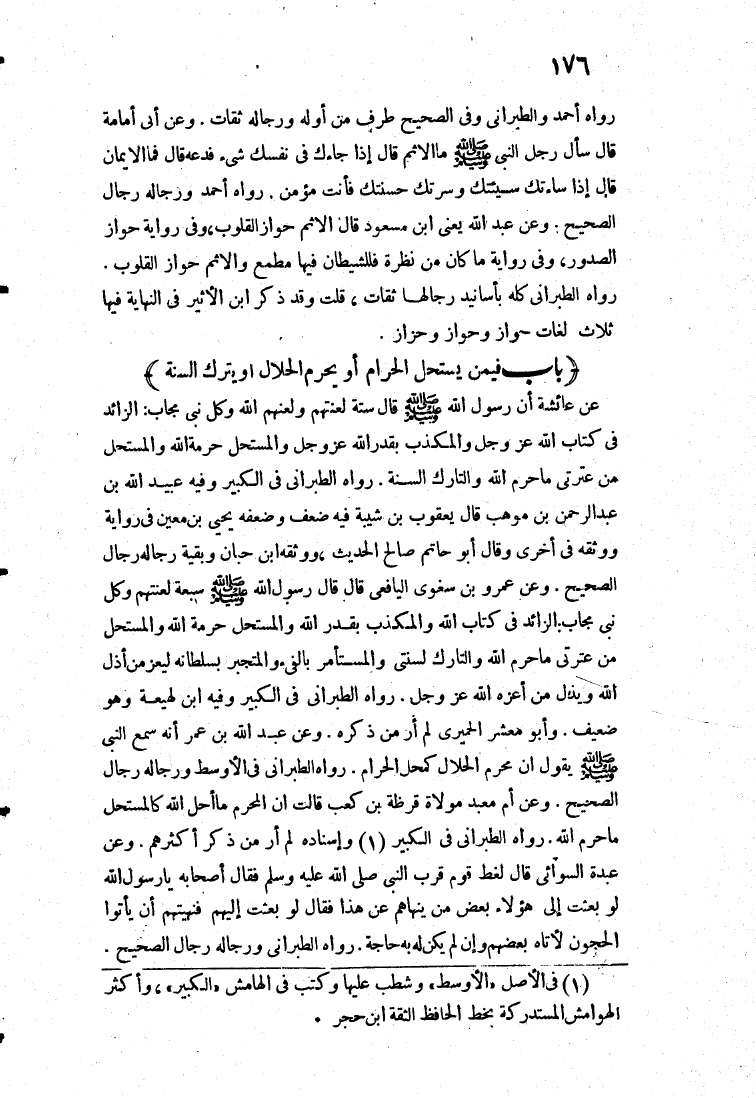 ١٧٦
رواه أحمد والطبرانى وفى الصحيح طرف من أوله ورجاله ثقات . وعن أبى أمامة
قال سأل رجل النبى ﷺ ماالاثم قال إذا جاءك فى نفسك شىء فدعه قال فماالايمان
قال إذا ساءتك سيئتك وسرتك حسنتك فأنت مؤمن . رواه أحمد ورجاله رجال
الصحيح . وعن عبد الله يعنى ابن مسعود قال الاثم حواز القلوب ، وفى رواية حواز
الصدور ، وفى رواية ما كان من نظرة فللشيطان فيها مطمع والاثم حواز القلوب .
رواه الطبرانى كله بأسانيد رجالها ثقات ، قلت وقد ذكر ابن الأثير فى النهاية فيها
ثلاث لغات حواز وحواز وحزاز .
﴿ باب فيمن يستحل الحرام أو يحرم الحلال اويترك السنة ﴾
عن عائشة أن رسول الله ﷺ قال ستة لعنتهم ولعنهم الله وكل نبى مجاب: الزائد
فى كتاب الله عز وجل والمكذب بقدرالله عزوجل والمستحل حرمةالله والمستحل
من عترتى ماحرم الله والتارك السنة . رواه الطبرانى فى الكبير وفيه عبيد الله بن
عبدالرحمن بن موهب قال يعقوب بن شيبة فيه ضعف وضعفه يحيى بن معين فى رواية
ووثقه فى أخرى وقال أبو حاتم صالح الحديث ، ووثقه ابن حبان وبقية رجاله رجال
الصحيح . وعن عمرو بن سغوى اليافعى قال قال رسول الله ﷺ سبعة لعنتهم وكل
نبى مجاب.الزائد فى كتاب الله والمكذب بقدر الله والمستحل حرمة الله والمستحل
من عترتى ماحرم الله والتارك لسنتى والمستأمر بالفىء والمتجبر بسلطانه ليعز من أذل
الله ويذل من أعزه الله عز وجل . رواه الطبرانى فى الكبير وفيه ابن لهيعة وهو
ضعيف . وأبو معشر الحميرى لم أر من ذكره . وعن عبد الله بن عمر أنه سمع النبى
ﷺ يقول ان محرم الحلال كمحل الحرام . رواه الطبرانى فى الأوسط ورجاله رجال
الصحيح . وعن أم معبد مولاة قرظة بن كعب قالت ان المحرم ماأحل الله كالمستحل
ماحرم الله . رواه الطبرانى فى الكبير (١) وإسناده لم أر من ذكر أكثرهم . وعن
عبدة السوائى قال لغط قوم قرب النبى صلى الله عليه وسلم فقال أصحابه يارسول الله
لو بعثت إلى هؤلاء بعض من ينهاهم عن هذا فقال لو بعثت إليهم فنهيتهم أن يأتوا
الحجون لأتاه بعضهم وإن لم يكن له به حاجة . رواه الطبرانى ورجاله رجال الصحيح .
(١) فى الأصل «الأوسط» وشطب عليها وكتب فى الهامش «الكبير» ، وأكثر
الهوامش المستدركة بخط الحافظ الثقة ابن حجر .